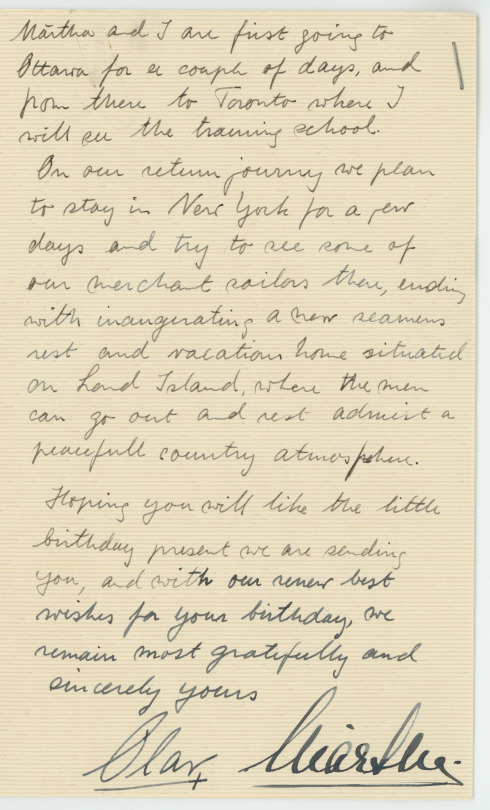 Märtha and I are first going to
Ottawa for a couple of days, and
from there to Toronto where I
will see the training school.
On our return journey we plan
to stay in New York for a few
days and try to see some of
our merchant sailors there, ending
with inaugerating a new seamens
rest and vacation home situated
on Lond Island, where the men
can go out and rest admist a
peacefull country atmosphere.
Hoping you will like the little
birthday present we are sending
you, and with our renew best
wishes for your birthday, we
remain most gratefully and
sincerely yours
Olav Märtha.